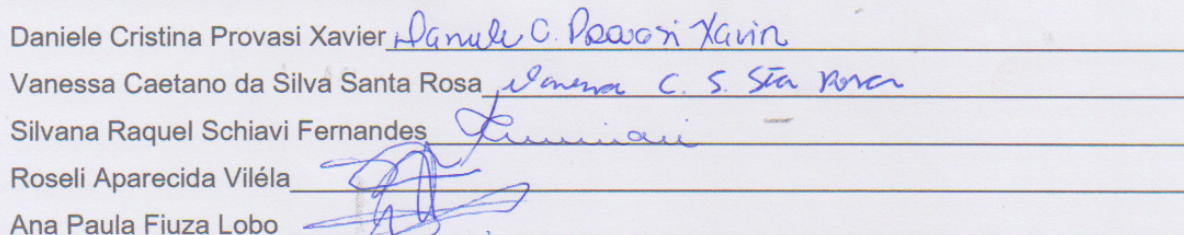 Daniele Cristina Provasi Xavier Daniele C. Provasi Xavier
Vanessa Caetano da Silva Santa Rosa Vanessa C. S. Sta Rosa
Silvana Raquel Schiavi Fernandes
Roseli Aparecida Viléla
Ana Paula Fiuza Lobo